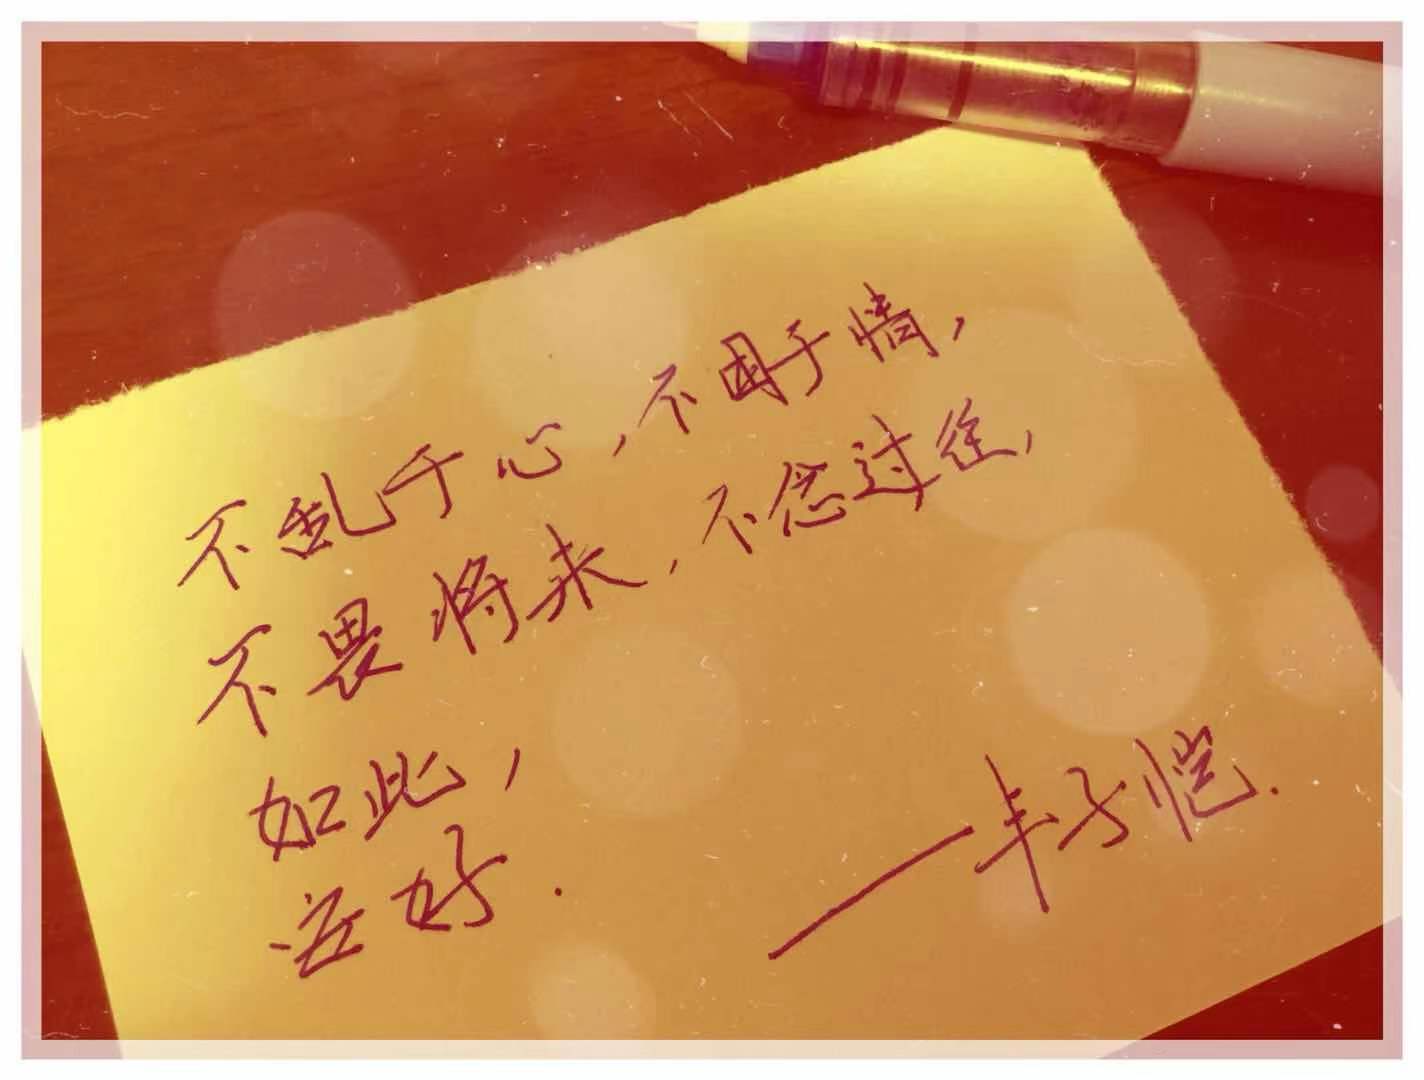 不乱于心，不困于情，
不畏将来，不念过往，
如此，
安好.
——丰子恺.